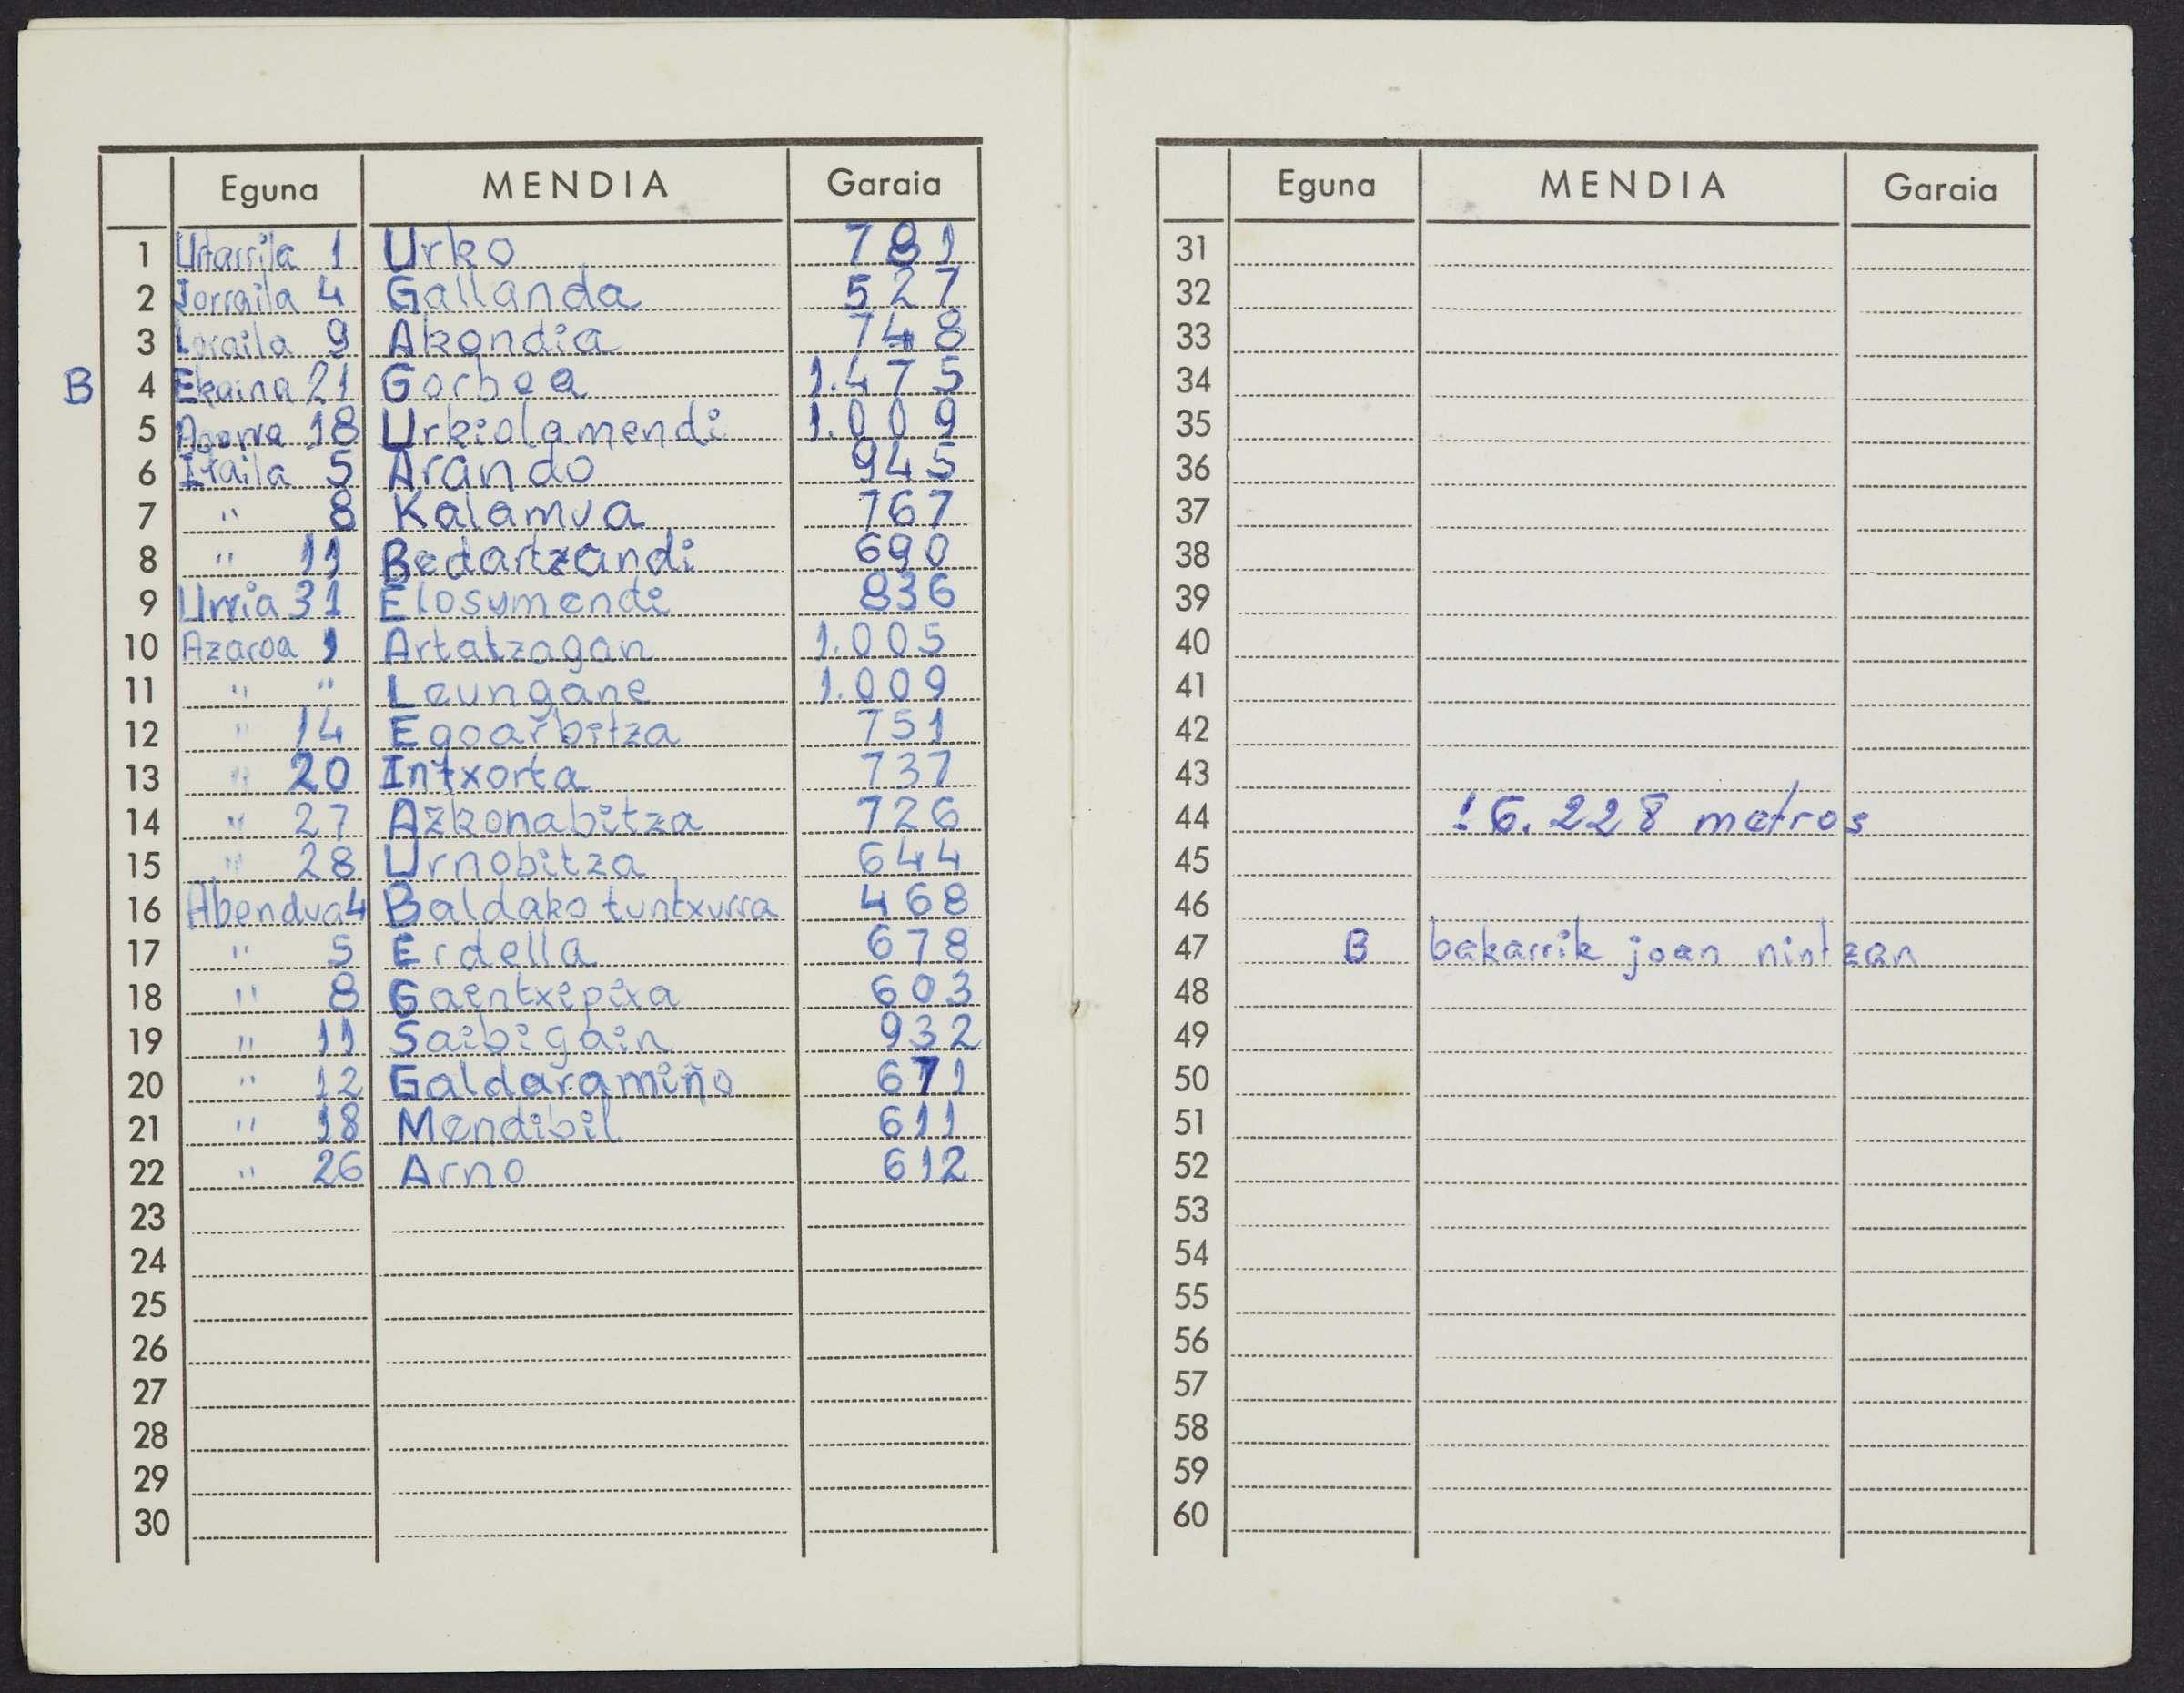 Eguna MENDIA Garaia
1 Urtarrila 1 Urko 781
2 Jorraila 4 Gallanda 527
3 Loraila 9 Akondia 748
B 4 Ekaina 21 Gorbea 1.475
5 Agorra 18 Urkiolamendi 1.009
6 Itaila 5 Arando 945
7 " 8 Kalamua 767
8 " 11 Bedartzandi 690
9 Urria 31 Elosumendi 836
10 Azaroa 1 Artatzagan 1.005
11 " " Leungane 1.009
12 " 14 Egoarbitza 751
13 " 20 Intxorta 737
14 " 27 Azkonabitza 726
15 " 28 Urnobitza 644
16 Abendua 4 Baldako tuntxurra 468
17 " 5 Erdella 678
18 " 8 Gaentxipixa 603
19 " 11 Saibigain 932
20 " 12 Galdaramiño 671
21 " 18 Mendibil 611
22 " 26 Arno 612
23
24
25
26
27
28
29
30
Eguna MENDIA Garaia
31
32
33
34
35
36
37
38
39
40
41
42
43
44 16.228 metros
45
46
47 B bakarrik joan nintzan
48
49
50
51
52
53
54
55
56
57
58
59
60